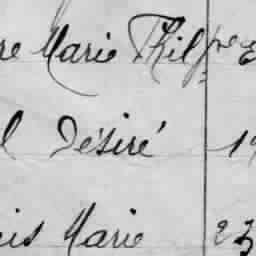 re Marie Phil
l Désiré 1
is Marie 23